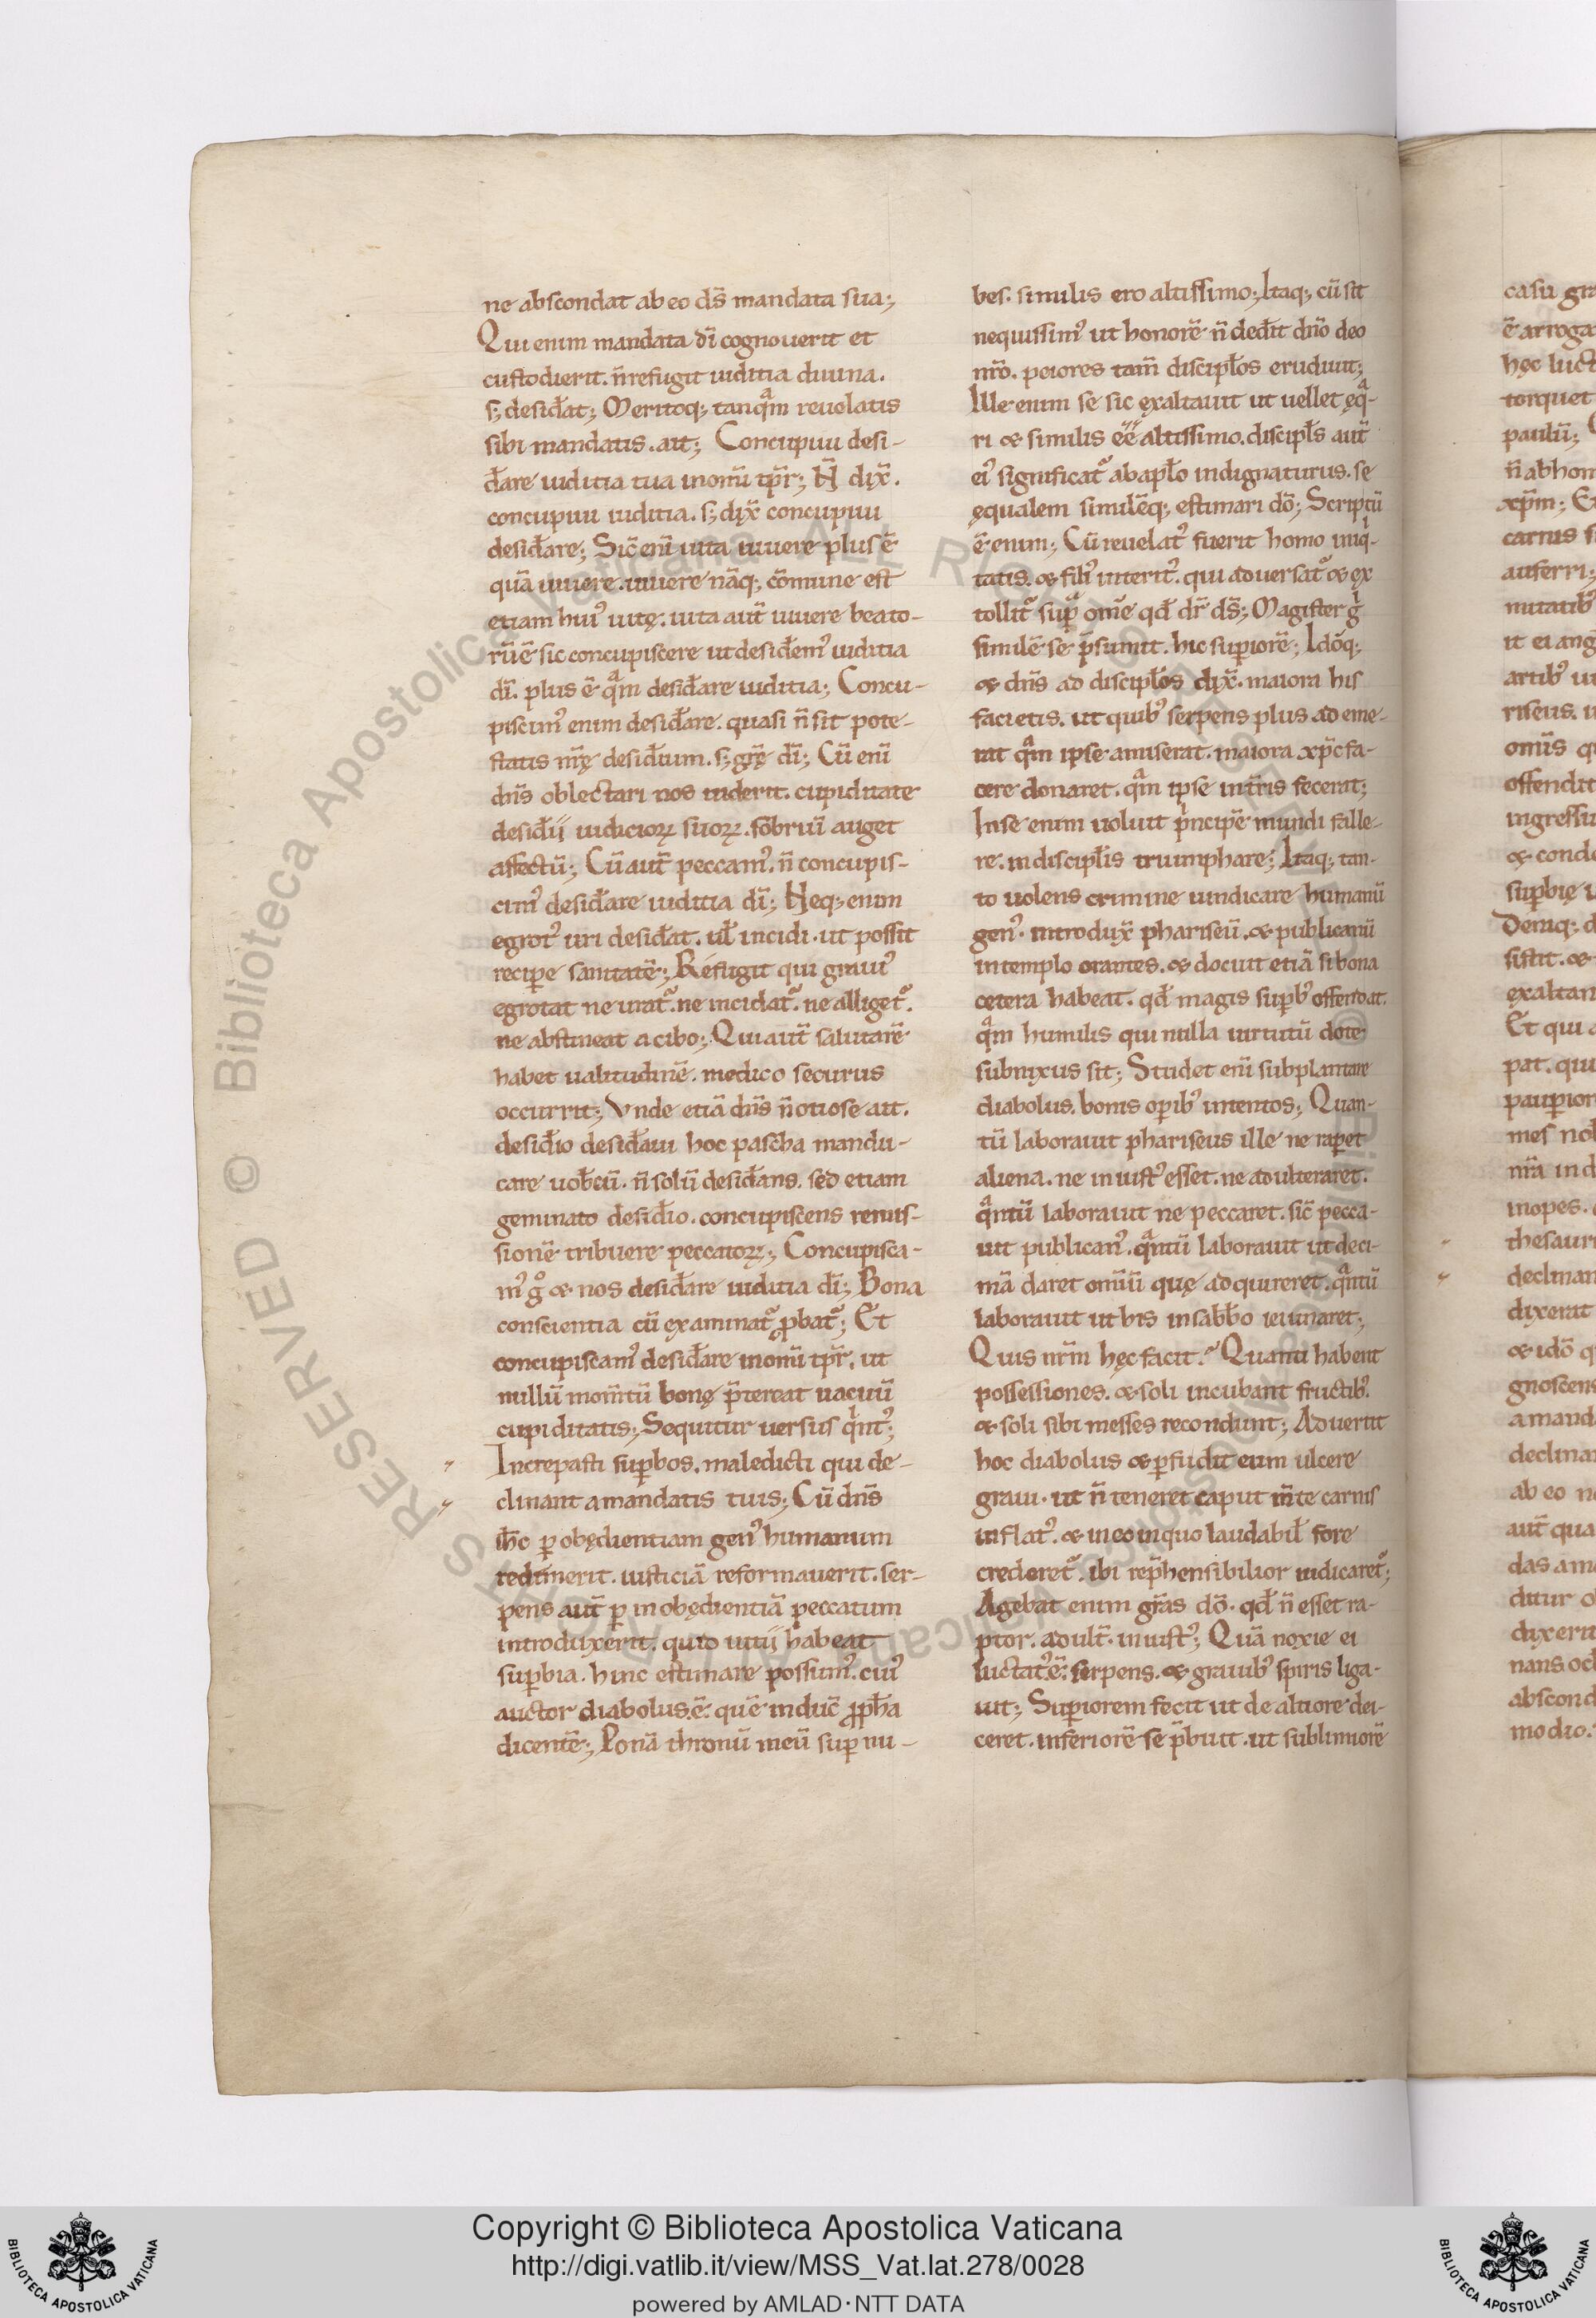 ne abscondat ab eo ds̄ mandata sua;
Qui enim mandata dī cognouerit et
custodierit. n̄ refugit iuditia diuina.
s; desiđat; Meritoq; tanqͣm reuelatis
sibi mandatis. ait; Concupiui desi-
đare iuditia tua in om̄i tp̄r; N̄ dix̄.
concupiui iuditia. s; dix̄ concupiui
desiđare; Sic̄ enī uita uiuere plus ē
quā uiuere. uiuere nāq; cōmune est
etiam huiꝰ uitę. uita aut̄ uiuere beato-
rū ē sic concupiscere ut desiđemꝰ iuditia
dī. plus ē qͣm desiđare iuditia; Concu-
piscimꝰ enim desiđare. quasi n̄ sit pote-
statis nr̄ę desiđium. s; gr̄ę dī; Cū enī
dn̄s oblectari nos uiderit. cupiditate
desiđii iudicioꝝ suoꝝ. sobriū auget
affectū; Cū aut̄ peccamꝰ. n̄ concupis-
cimꝰ desiđare iuditia dī; Neq; enim
egrotꝰ uri desiđat. ul̄ incidi. ut possit
recipe sanitatē; Refugit qui grauiꝰ
egrotat ne urat᷑. ne incidat᷑. ne alliget᷑.
ne abstineat a cibo; Qui aut̄ salutarē
habet ualitudinē. medico securus
occurrit; Vnde etiā dn̄s n̄ otiose ait.
desiđio desiđaui hoc pascha mandu-
care uob̄cū. n̄ solū desiđans. sed etiam
geminato desiđio. concupiscens remis-
sionē tribuere peccatoꝝ; Concupisca-
mꝰ gͦ & nos desiđare iuditia dī; Bona
conscientia cū examinat᷑ ꝓbat᷑; Et
concupiscamꝰ desiđare in om̄i tp̄r. ut
nullū mom̄tū bonę p̄tereat uacuū
cupiditatis; Sequitur uersus qͥntꝰ;
Increpasti suꝑbos. maledicti qui de-
clinant a mandatis tuis; Cū dn̄s
ih̄c ꝑ obędientiam genꝰ humanum
redimerit. iusticiā reformauerit. ser-
pens aut̄ ꝑ inobędientiā peccatum
introduxerit. quid uitii habeat
suꝑbia. hinc estimare possumꝰ. cuiꝰ
auctor diabolus ē. quē induc̄ ꝓph̄a
dicentē; Ponā thronū meū suꝑ nu-
bes. similis ero altissimo; Itaq; cū sit
nequissimꝰ ut honorē n̄ deđit dn̄o deo
nr̄o. peiores tam̄ discipl̄os erudiuit;
Ille enim se sic ęxaltauit ut uellet ęqͣ-
ri & similis eē altissimo. discipl̄s aut̄
eiꝰ significat᷑ ab apl̄o indignaturus. se
ęqualem similēq; estimari dō; Scriptū
ē enim; Cū reuelatꝰ fuerit homo iniqͥ-
tatis. & filiꝰ interitꝰ. qui aduersat᷑ & ex
tollit᷑ supͣ om̄e qđ dr̄ ds̄; Magister gͥ
similē se p̄sumit. hic suꝑiorē; Idōq;
& dn̄s ad discipl̄os dix̄. maiora his
facietis. ut quibꝰ serpens plus ademe-
rat qͣm ipse amiserat. maiora xp̄c fa-
cere donaret. qͣm ipse in tr̄ris fecerat;
In se enim uoluit pͥncipē mundi falle-
re. in discipl̄is triumphare; Itaq; tan-
to uolens crimine uindicare humanū
genꝰ. introdux̄ phariseū. & publicanū
in templo orantes. & docuit etiā si bona
cetera habeat. qđ magis suꝑbꝰ offendat.
qͣm humilis qui nulla uirtutū dote
subnixus sit; Studet enī subplantare
diabolus. bonis oꝑibꝰ intentos; Quan-
tū laborauit phariseus ille ne raperet
aliena. ne iniustꝰ esset. ne adulteraret.
qͣntū laborauit ne peccaret. sic̄ pecca-
uit publicanꝰ. qͣntū laborauit ut deci-
mā daret omiū quę adquireret. qͣntū
laborauit ut bis in sab̄bo ieiunaret;
Quis nr̄m hęc facit? Quanti habent
possessiones. & soli incubant fructibꝰ.
& soli sibi messes recondunt; Aduertit
hoc diabolus & ꝑfudit eum ulcere
graui. ut n̄ teneret caput m̄te carnis
inflatꝰ. & in eo in quo laudabil̄ fore
crederet᷑. ibi rep̄hensibilior iudicaret᷑;
Agebat enim gr̄as dō. qđ n̄ esset ra-
ptor. adult̄. iniustꝰ; Quā noxie ei
luctatꝰ ē serpens. & grauibꝰ spiris liga-
uit; Suꝑiorem fecit ut de altiore dei-
ceret. inferiorē se p̄buit. ut sublimiorē
casu
ē arroga
hęc luct
torquet
paulū;
n̄ ab hom
xp̄m;
carnis
auferri;
mutatibꝰ
it ei ang
artibꝰ
riseus.
om̄s
offendit
ingressu
& conde
suꝑbię
Deniq;
sistit. &
exaltan
Et qui
pat. qui
pauꝑior
mes
nr̄a in
inopes.
thesaur
declinan
dixerat
& idō
gnoscens
a mand
declinan
ab eo
aut̄ qua
das
ditur
dixerit
nans
abscond
modio.
Copyright © Biblioteca Apostolica Vaticana
http://digi.vatlib.it/view/MSS_Vat.lat.278/0028
powered by AMLAD·NTT DATA
BIBLIOTECA APOSTOLICA VATICANA
BIBLIOTECA APOSTOLICA VATICANA